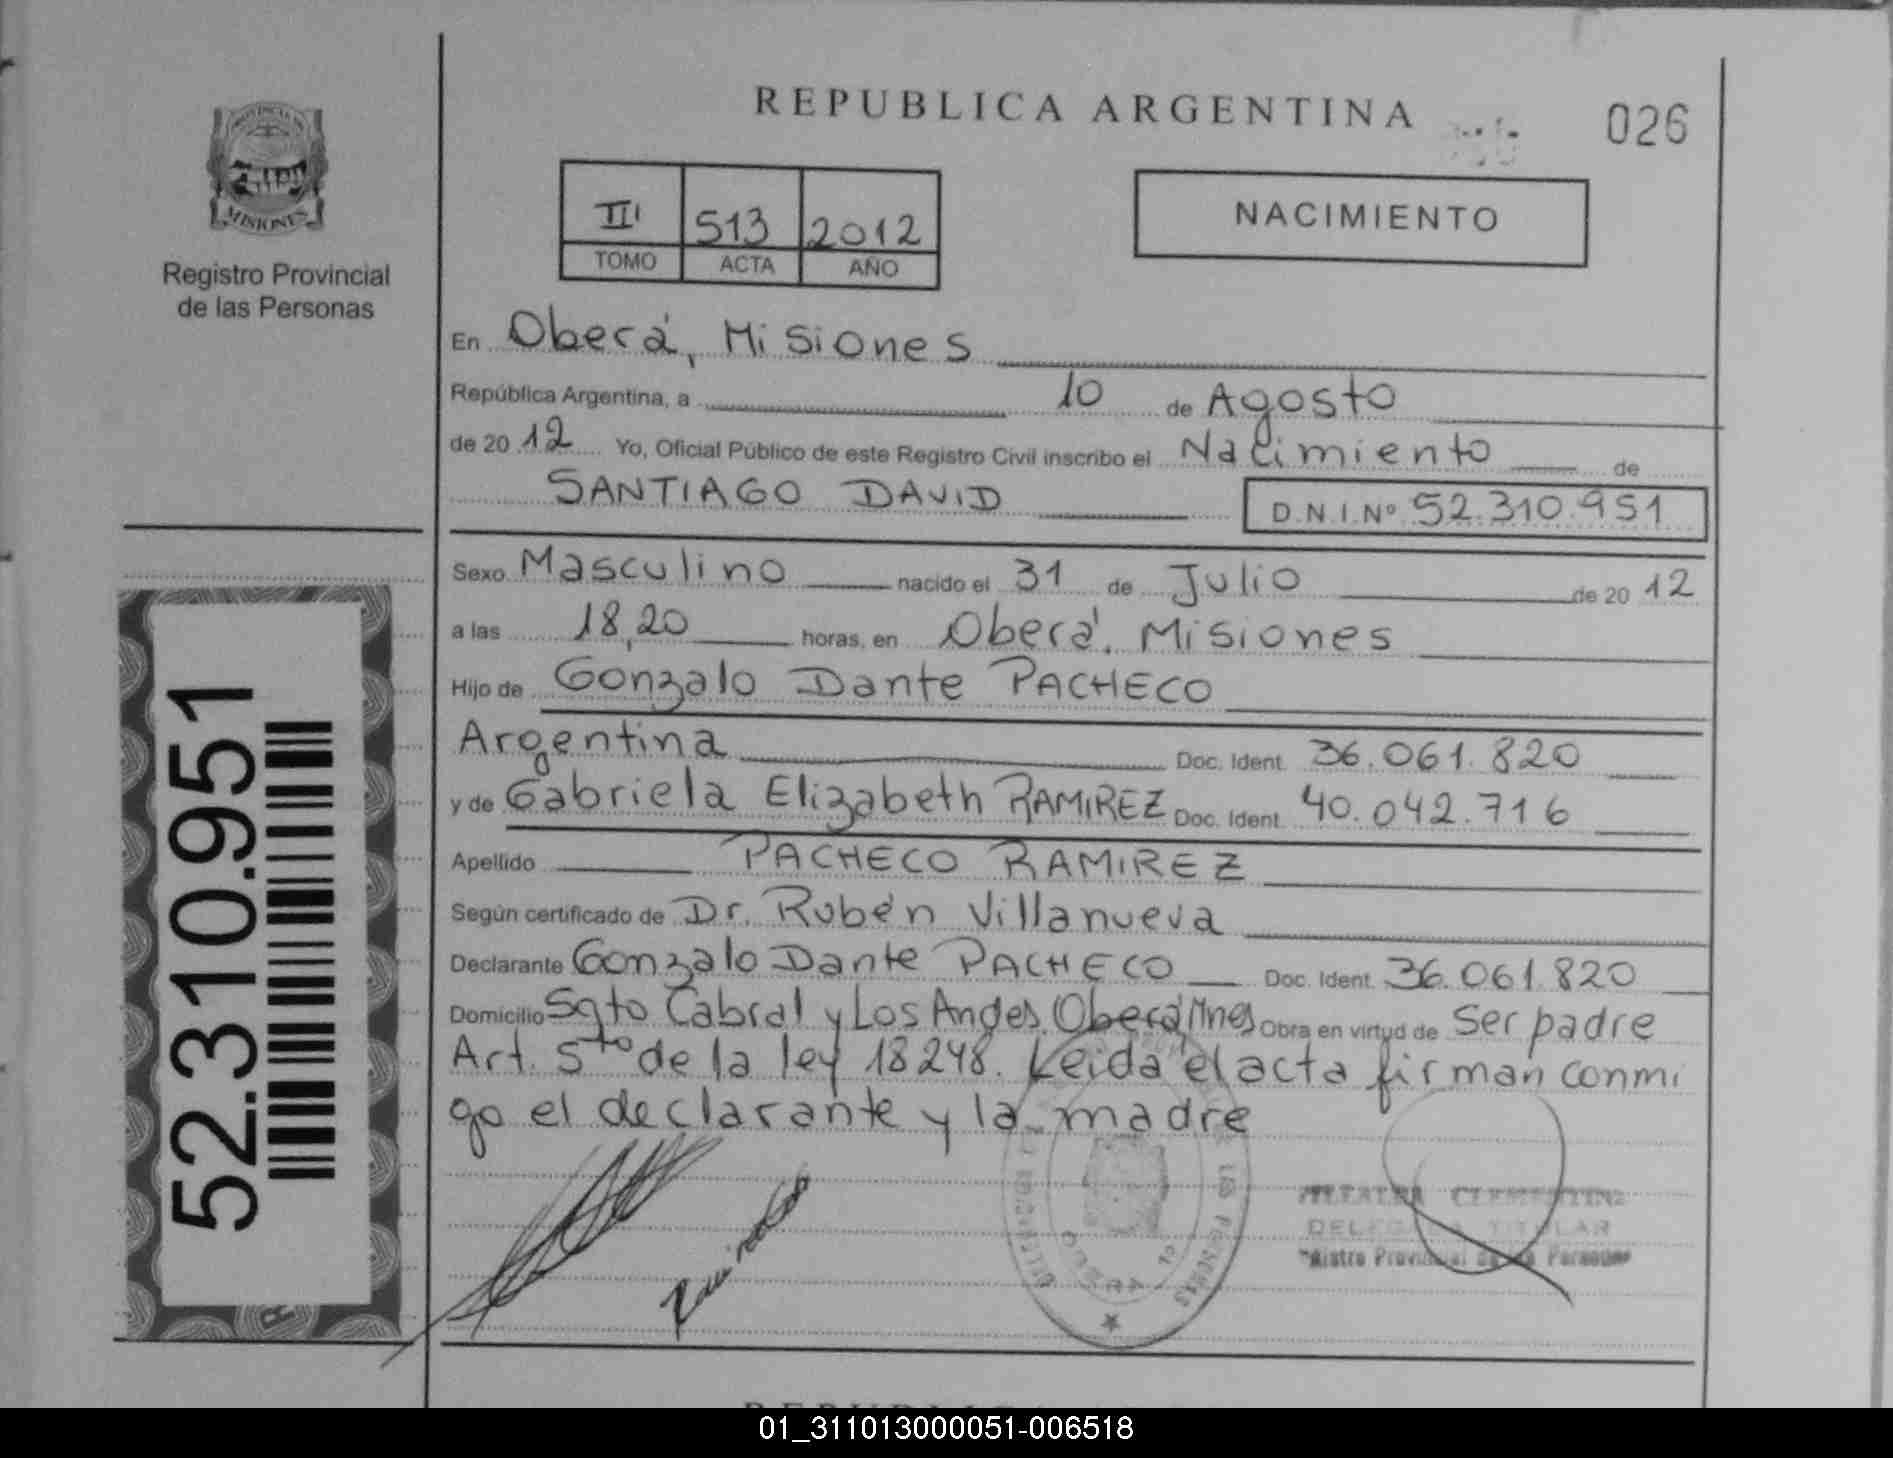 REPUBLICA ARGENTINA
026
MISIONES
Registro Provincial
de las Personas
III 513 2012
TOMO ACTA AÑO
NACIMIENTO
En Oberá, Misiones
República Argentina, a 10 de Agosto
de 20 12 Yo, Oficial Público de este Registro Civil inscribo el Nacimiento de
SANTIAGO DAVID D.N.I.Nº 52.310.951
Sexo Masculino nacido el 31 de Julio de 20 12
a las 18,20 horas, en Oberá, Misiones
Hijo de Gonzalo Dante PACHECO
Argentina Doc. Ident. 36.061.820
y de Gabriela Elizabeth RAMIREZ Doc. Ident. 40.042.716
Apellido PACHECO RAMIREZ
Según certificado de Dr. Rubén Villanueva
Declarante Gonzalo Dante PACHECO Doc. Ident. 36.061.820
Domicilio Sgto Cabral y Los Andes, Oberá Mnes Obra en virtud de Ser padre
Art. 5to de la ley 18248. Leida el acta firman conmi
go el declarante y la madre
52.310.951
DELEGADA TITULAR
01_311013000051-006518